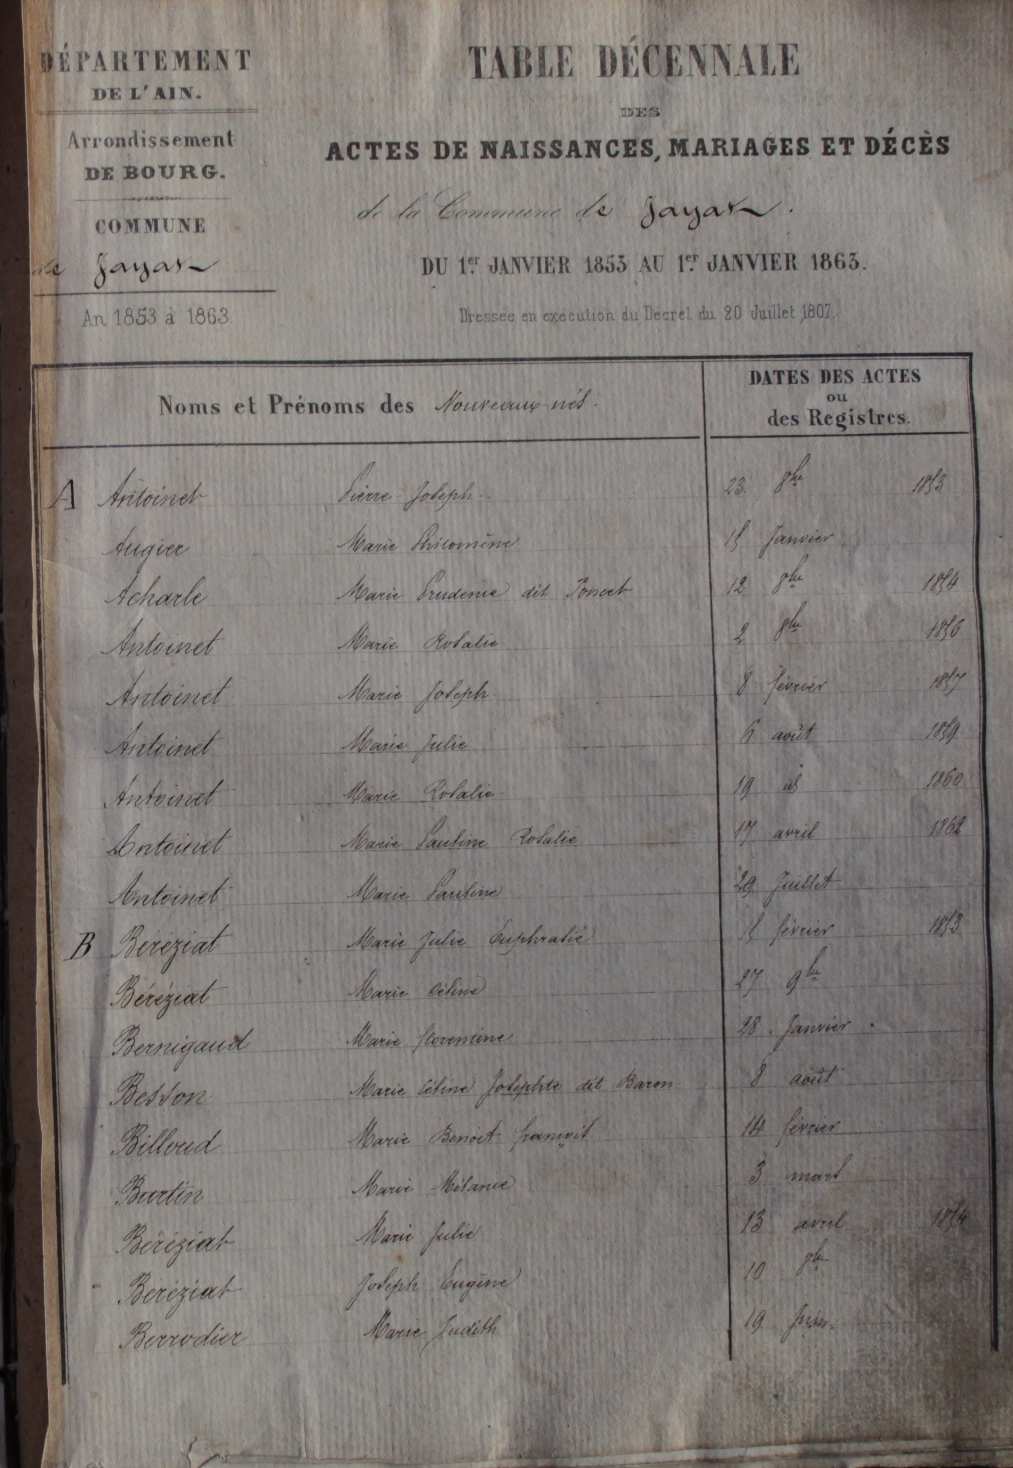 DÉPARTEMENT
DE L'AIN.
Arrondissement
DE BOURG.
COMMUNE
de Jayat
An 1853 à 1863
TABLE DÉCENNALE
DES
ACTES DE NAISSANCES, MARIAGES ET DÉCÈS
de la Commune de Jayat.
DU 1er JANVIER 1853 AU 1er JANVIER 1863.
Dressée en exécution du Décret du 20 Juillet 1807.
Noms et Prénoms des Nouveaux-nés.
DATES DES ACTES
ou
des Registres.
A Antoinet Pierre Joseph 23 8bre 1853
Augier Marie Philomène 15 Janvier
Acharle Marie Prudence dit Poncet 12 8bre 1854
Antoinet Marie Rosalie 2 8bre 1856
Antoinet Marie Joseph 8 février 1857
Antoinet Marie Julie 6 août 1859
Antoinet Marie Rosalie 19 id 1860
Antoinet Marie Pauline Rosalie 17 avril 1862
Antoinet Marie Pauline 29 Juillet
B Béréziat Marie Julie Euphrasie 15 février 1853
Béréziat Marie Céline 27 9bre
Bernigaud Marie florentine 28 Janvier
Besson Marie Céline Josephte dit Baron 8 août
Billoud Marie Benoit françois 14 février
Burtin Marie Mélanie 3 mars
Béréziat Marie Julie 13 avril 1854
Béréziat Joseph Eugène 10 8bre
Berrodier Marie Judith 19